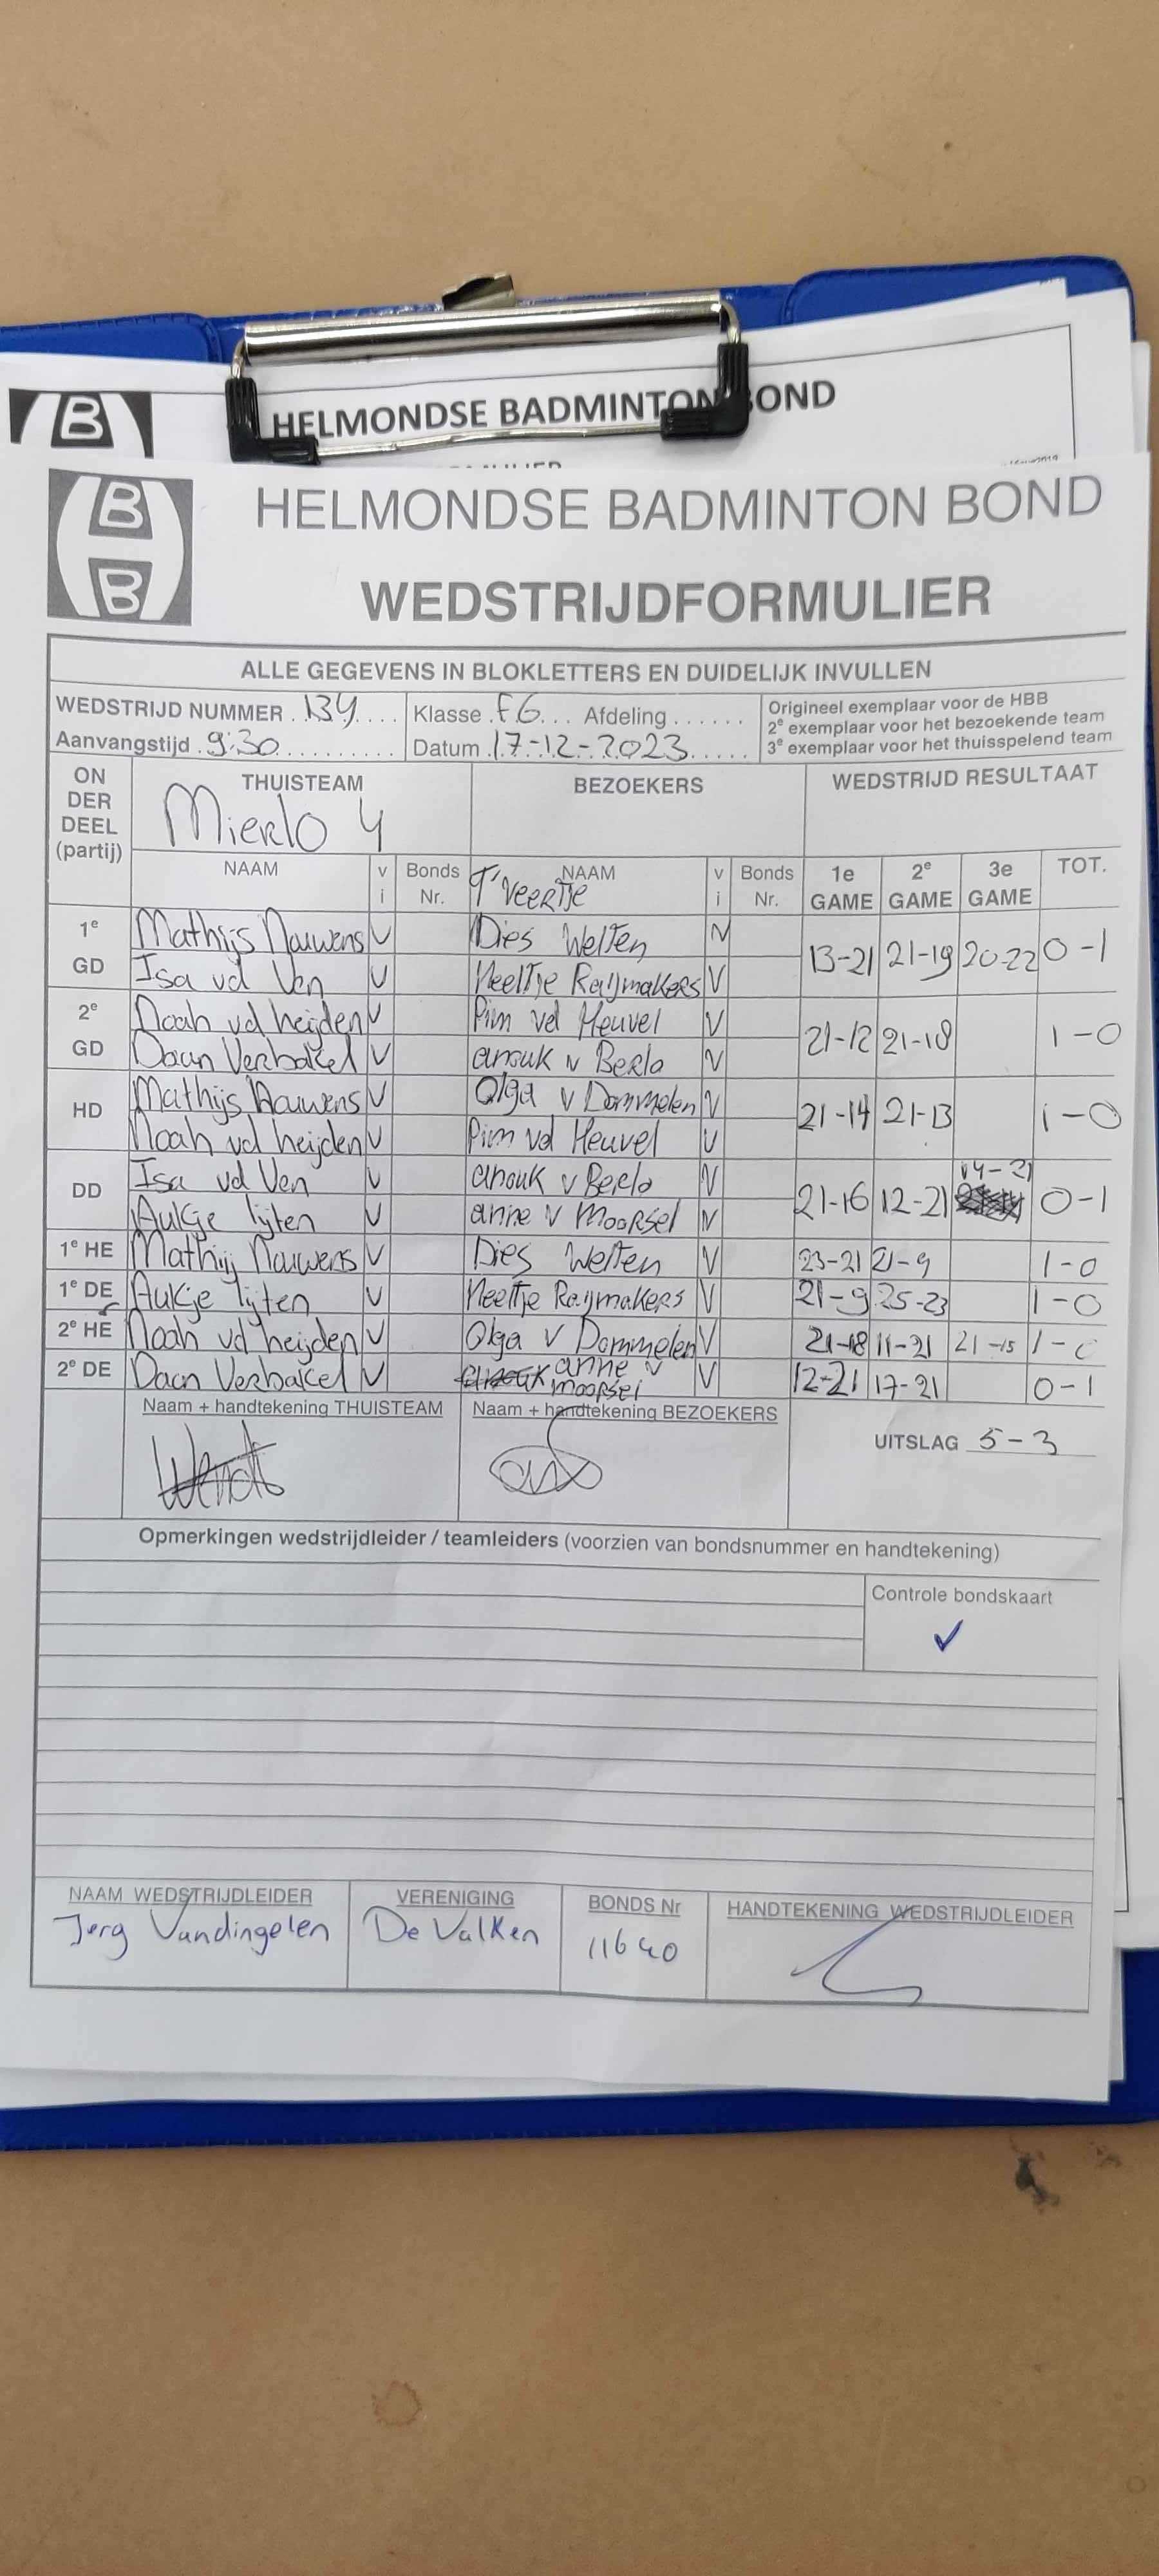 HELMONDSE BADMINTON BOND
HELMONDSE BADMINTON BOND
WEDSTRIJDFORMULIER
ALLE GEGEVENS IN BLOKLETTERS EN DUIDELIJK INVULLEN
WEDSTRIJD NUMMER 134 Klasse F6 Afdeling Origineel exemplaar voor de HBB
2e exemplaar voor het bezoekende team
Aanvangstijd 9:30 Datum 17-12-2023 3e exemplaar voor het thuisspelend team
ON DER DEEL (partij) THUISTEAM BEZOEKERS WEDSTRIJD RESULTAAT
Mierlo 4
NAAM v i Bonds Nr. NAAM v i Bonds Nr. 1e GAME 2e GAME 3e GAME TOT.
T' Veertje
1e GD Mathijs Nauwens V Dies Welten V 13-21 21-19 20-22 0-1
Isa vd Ven V Neeltje Raijmakers V
2e GD Noah vd heijden V Pim vd Heuvel V 21-12 21-18 1-0
Daan Verbakel V anouk v Berlo V
HD Mathijs Nauwens V Olga v Dommelen V 21-14 21-13 1-0
Noah vd heijden V Pim vd Heuvel V
DD Isa vd Ven V anouk v Berlo V 21-16 12-21 14-21 0-1
Aukje lijten V anne v Moorsel V
1e HE Mathijs Nauwens V Dies Welten V 23-21 21-9 1-0
1e DE Aukje lijten V Neeltje Raijmakers V 21-9 25-23 1-0
2e HE Noah vd heijden V Olga v Dommelen V 21-18 11-21 21-15 1-0
2e DE Daan Verbakel V anne v moorsel V 12-21 17-21 0-1
Naam + handtekening THUISTEAM Naam + handtekening BEZOEKERS
UITSLAG 5-3
Opmerkingen wedstrijdleider / teamleiders (voorzien van bondsnummer en handtekening)
Controle bondskaart
NAAM WEDSTRIJDLEIDER VERENIGING BONDS Nr HANDTEKENING WEDSTRIJDLEIDER
Jerg Vandingelen De Valken 11640